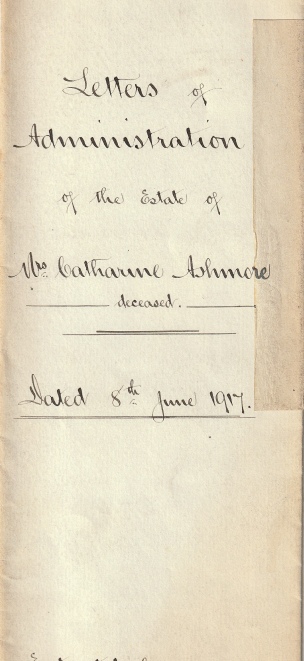 Letters of
Administration
of the Estate of
Mrs Catharine Ashmore
deceased.
Dated 8th June 1917.